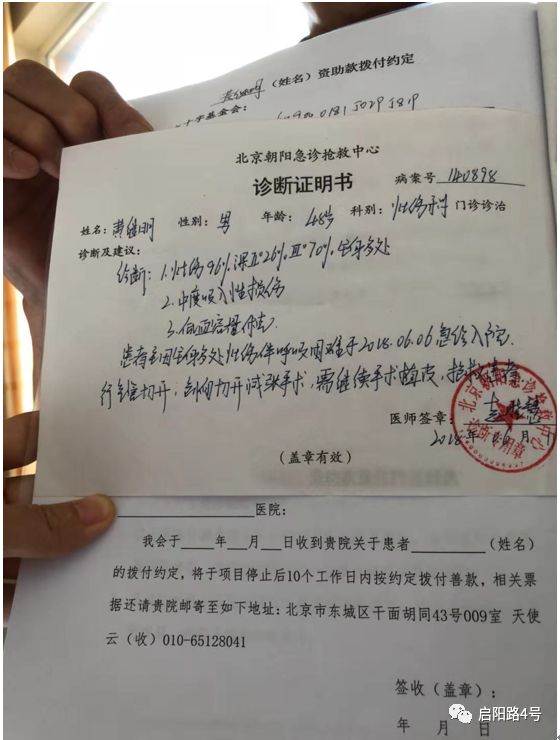 （姓名）资助款拨付约定
十字基金会：
北京朝阳急诊抢救中心
诊断证明书
病案号 140898
姓名： 性别：男 年龄：48岁 科别：烧伤科 门诊诊治
诊断及建议：
诊断：1.烧伤96% 深Ⅱ°26%Ⅲ°70%全身多处
2.中度吸入性损伤
3.
患者主因全身多处烧伤伴呼吸困难于2018.06.06急诊入
切开减张手术，需继续手术植皮，
医师签章：
2018年 月
（盖章有效）
北京朝阳急诊抢救中心
诊断专用章
医院：
我会于 年 月 日收到贵院关于患者 （姓名）
的拨付约定，将于项目停止后10个工作日内按约定拨付善款，相关票
据还请贵院邮寄至如下地址：北京市东城区干面胡同43号009室 天使
云（收）010-65128041
签收（盖章）：
年 月 日
启阳路4号